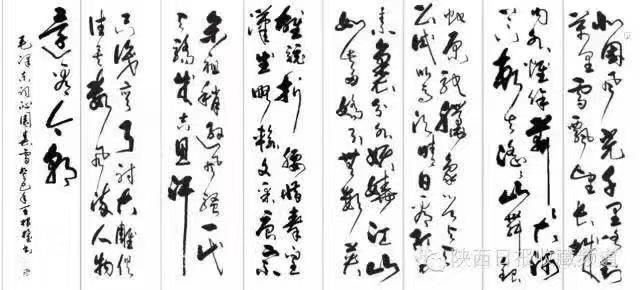 北国风光千里冰封
万里雪飘望长城
内外惟余莽莽大河
上下顿失滔滔山舞银
蛇原驰腊象欲与天
公试比高须晴日看红
装素裹分外妖娆江山
如此多娇引无数英
雄竞折腰惜秦皇
汉武略输文采唐宗
宋祖稍逊风骚一代
天骄成吉思汗
只识弯弓射大雕俱
往矣数风流人物
还看今朝
毛泽东词沁园春雪癸巳年
陕西日报收藏频道